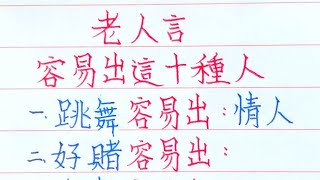 老人言
容易出這十種人
一.跳舞容易出：情人
二.好賭容易出：